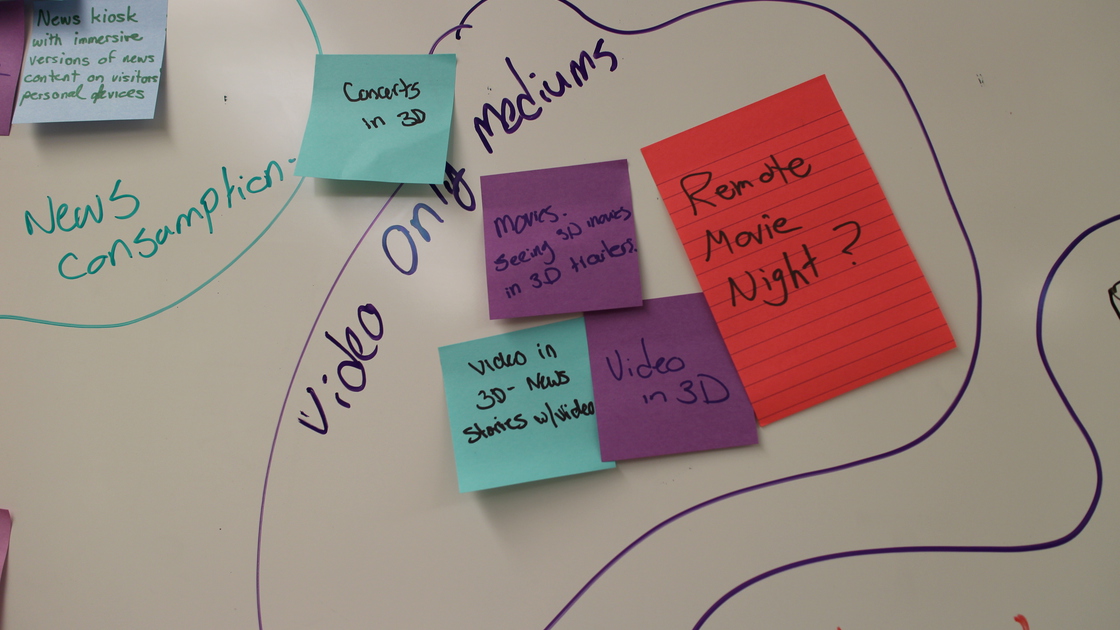 News kiosk
with immersive
versions of news
content on visitors
personal devices
News
Consumption
Concerts
in 3D
Video only mediums
Movies.
Seeing 3D movies
in 3D
Remote
Movie
Night?
Video in
3D- News
Stories w/video
Video
in 3D